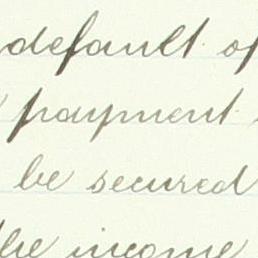 default of
payment
be secured
the income